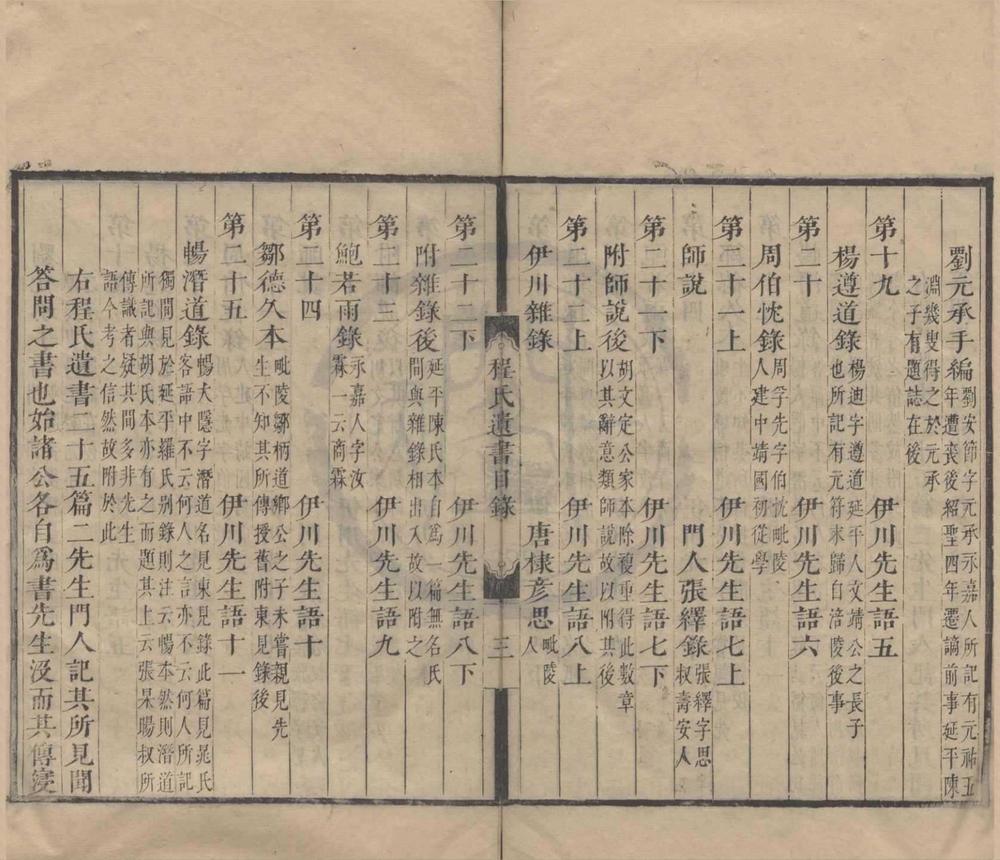 劉元承手編劉安節字元承永嘉人所記有元祐五
年遭喪後紹聖四年遷謫前事延平陳
淵幾叟得之於元承
之子有題誌在後
第十九 伊川先生語五
楊遵道錄楊迪字遵道延平人文靖公之長子
也所記有元符末歸自涪陵後事
第二十 伊川先生語六
周伯忱錄周孚先字伯忱毗陵
人建中靖國初從學
第二十一上 伊川先生語七上
師說 門人張繹錄張繹字思
叔壽安人
第二十一下 伊川先生語七下
附師說後胡文定公家本除複重得此數章
以其辭意類師說故以附其後
第二十二上 伊川先生語八上
伊川雜錄 唐棣彥思毗陵
人
程氏遺書目錄 三
第二十二下 伊川先生語八下
附雜錄後延平陳氏本自為一篇無名氏
間與雜錄相出入故以附之
第二十三 伊川先生語九
鮑若雨錄永嘉人字汝
霖一云商霖
第二十四 伊川先生語十
鄒德久本毗陵鄒柄道鄉公之子未嘗親見先
生不知其所傳授舊附東見錄後
第二十五 伊川先生語十一
暢潛道錄暢大隱字潛道名見東見錄此篇見晁氏
客語中不云何人之言亦不云何人所記
獨間見於延平羅氏別錄則注云暢本然則潛道
所記與胡氏本亦有之而題其上云張杲暘叔所
傳識者疑其間多非先生
語今考之信然故附於此
右程氏遺書二十五篇二先生門人記其所見聞
答問之書也始諸公各自爲書先生沒而其傳寖